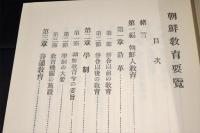 朝鮮教育要覽
目次
緒言
第一編 朝鮮人教育
第一章 沿革
第一節 併合以前の教育
第二節 併合以後の教育
第二章 學制
第一節 朝鮮教育令の要旨
第二節 學制の大要
第三節 教育機關の施設
第三章 普通教育